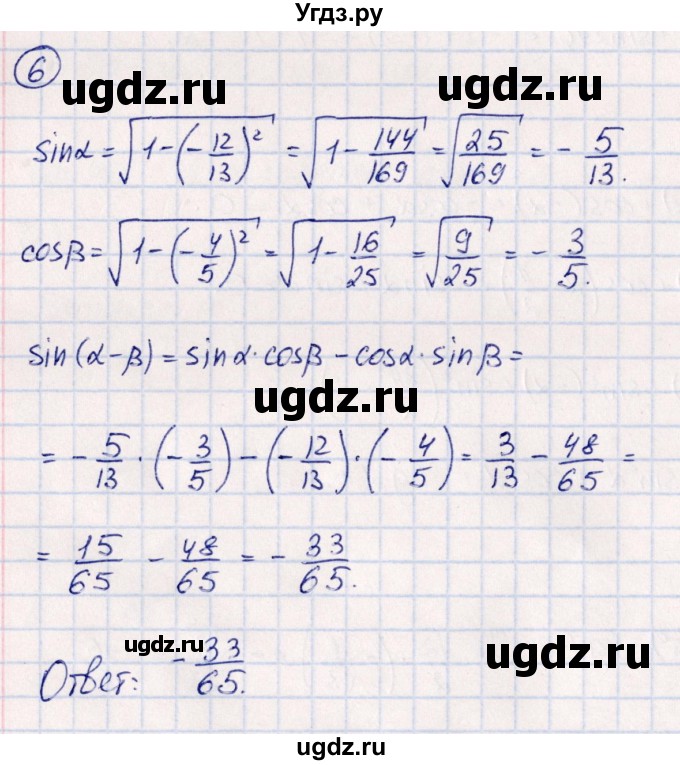 Угдз.ру
6
ugdz.ru ugdz.ru
sinα = √(1-(-12/13)²) = √(1-144/169) = √(25/169) = - 5/13.
cosβ = √(1-(-4/5)²) = √(1-16/25) = √(9/25) = - 3/5.
sin(α-β) = sinα·cosβ - cosα·sinβ =
ugdz.ru
= - 5/13 · (- 3/5) - (- 12/13) · (- 4/5) = 3/13 - 48/65 =
= 15/65 - 48/65 = - 33/65.
ugdz.ru ugdz.ru
Ответ: - 33/65.
ugdz.ru